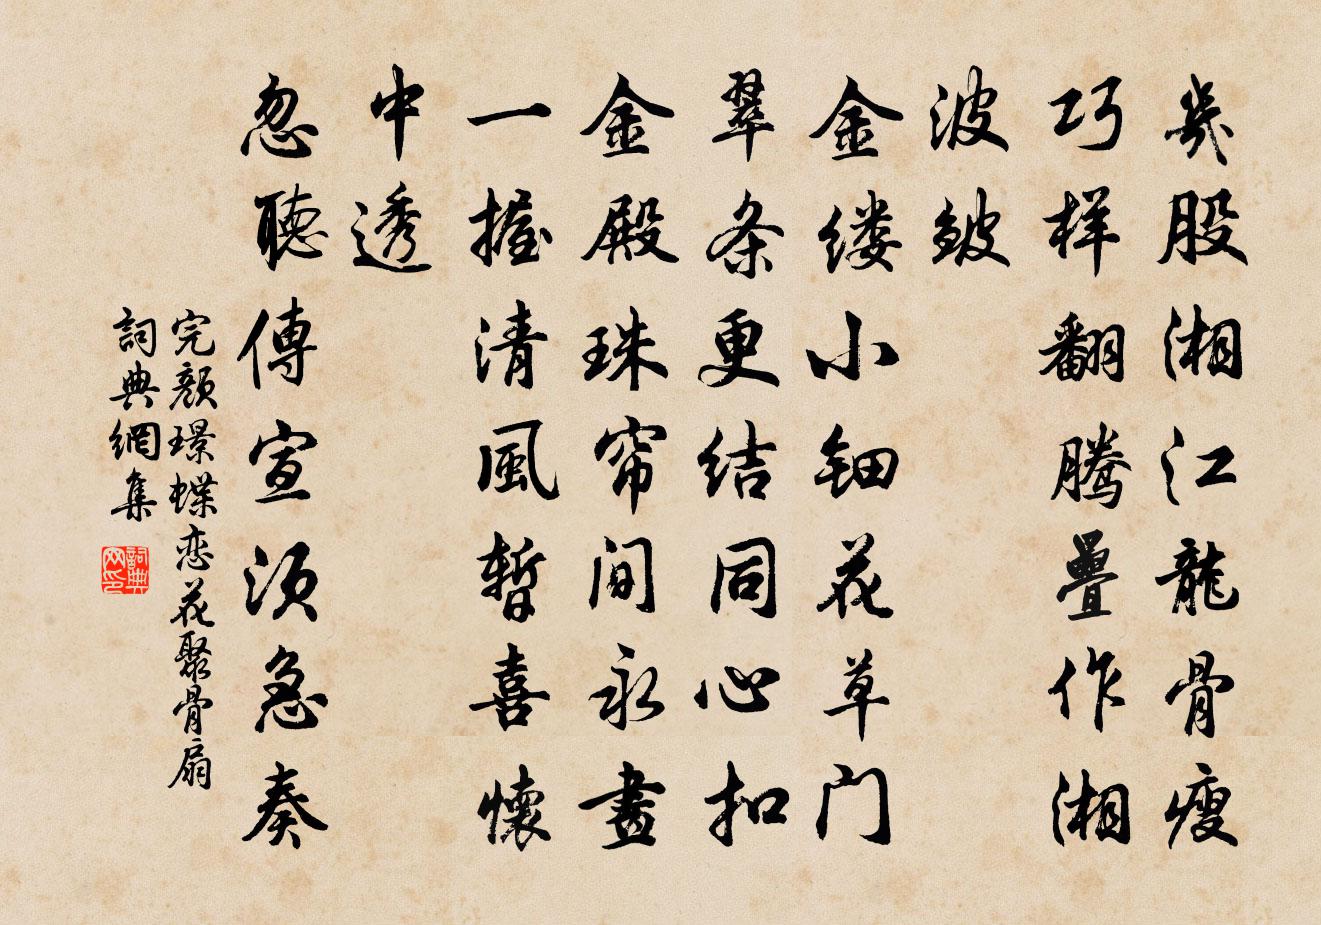 幾股湘江龍骨瘦
巧样翻騰疊作湘
波皴
金缕小钿花草门
翠条更结同心扣
金殿珠帘间永晝
一握清風暫喜懷
中透
忽聽傳宣须急奏
完颜璟蝶恋花聚骨扇
詞典網集
詞典网印